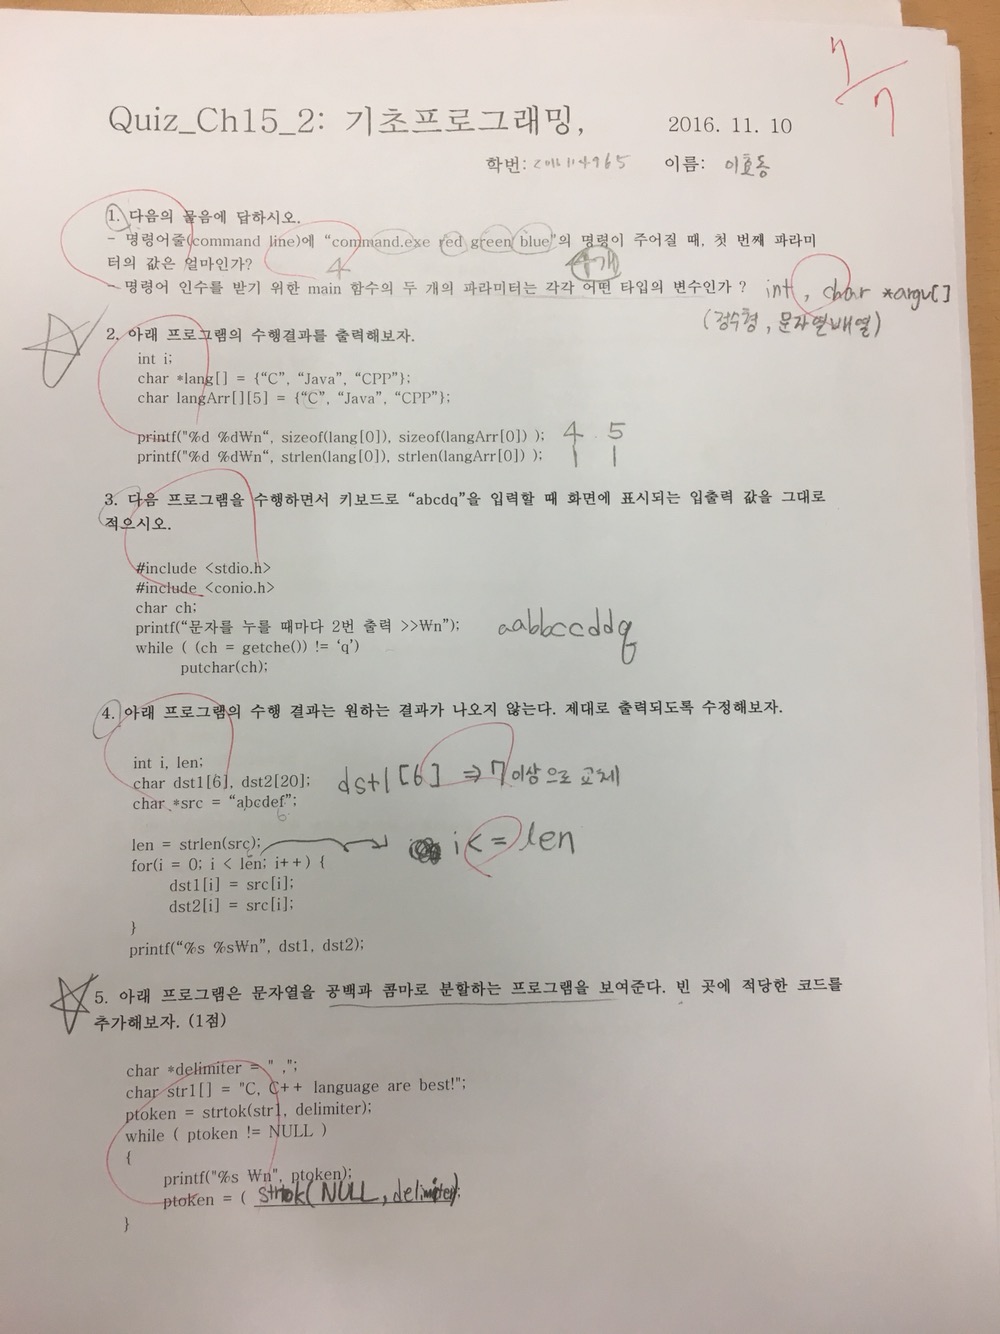 7/7
Quiz_Ch15_2: 기초프로그래밍, 2016. 11. 10
학번: 이름: 이효동
1. 다음의 물음에 답하시오.
- 명령어줄(command line)에 "command.exe red green blue"의 명령이 주어질 때, 첫 번째 파라미
터의 값은 얼마인가? 4 4개
- 명령어 인수를 받기 위한 main 함수의 두 개의 파라미터는 각각 어떤 타입의 변수인가 ? int, char *argv[]
(정수형, 문자열배열)
2. 아래 프로그램의 수행결과를 출력해보자.
int i;
char *lang[] = {“C”, “Java”, “CPP”};
char langArr[][5] = {“C”, “Java”, “CPP”};
printf("%d %d₩n“, sizeof(lang[0]), sizeof(langArr[0]) ); 4 5
printf("%d %d₩n“, strlen(lang[0]), strlen(langArr[0]) ); 1 1
3. 다음 프로그램을 수행하면서 키보드로 “abcdq”을 입력할 때 화면에 표시되는 입출력 값을 그대로
적으시오.
#include <stdio.h>
#include <conio.h>
char ch;
printf(“문자를 누를 때마다 2번 출력 >>₩n”); aabbccddq
while ( (ch = getche()) != ‘q’)
putchar(ch);
4. 아래 프로그램의 수행 결과는 원하는 결과가 나오지 않는다. 제대로 출력되도록 수정해보자.
int i, len;
char dst1[6], dst2[20]; dst1[6] ⇒ 7이상으로 교체
char *src = “abcdef”;
6
len = strlen(src); i <= len
6
for(i = 0; i < len; i++) {
dst1[i] = src[i];
dst2[i] = src[i];
}
printf(“%s %s₩n”, dst1, dst2);
5. 아래 프로그램은 문자열을 공백과 콤마로 분할하는 프로그램을 보여준다. 빈 곳에 적당한 코드를
추가해보자. (1점)
char *delimiter = " ,";
char str1[] = "C, C++ language are best!";
ptoken = strtok(str1, delimiter);
while ( ptoken != NULL )
{
printf("%s ₩n", ptoken);
ptoken = ( strtok(NULL, delimiter);
}